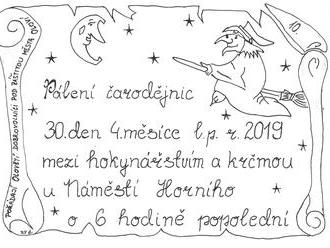 10.
Pálení čarodějnic
30.den 4.měsíce l.p.r.2019
mezi hokynářstvím a krčmou
u Náměstí Horního
o 6 hodině popolední
POŘÁDAJÍ DOBROVOLNÍCI POD ZÁŠTITOU MĚSTA